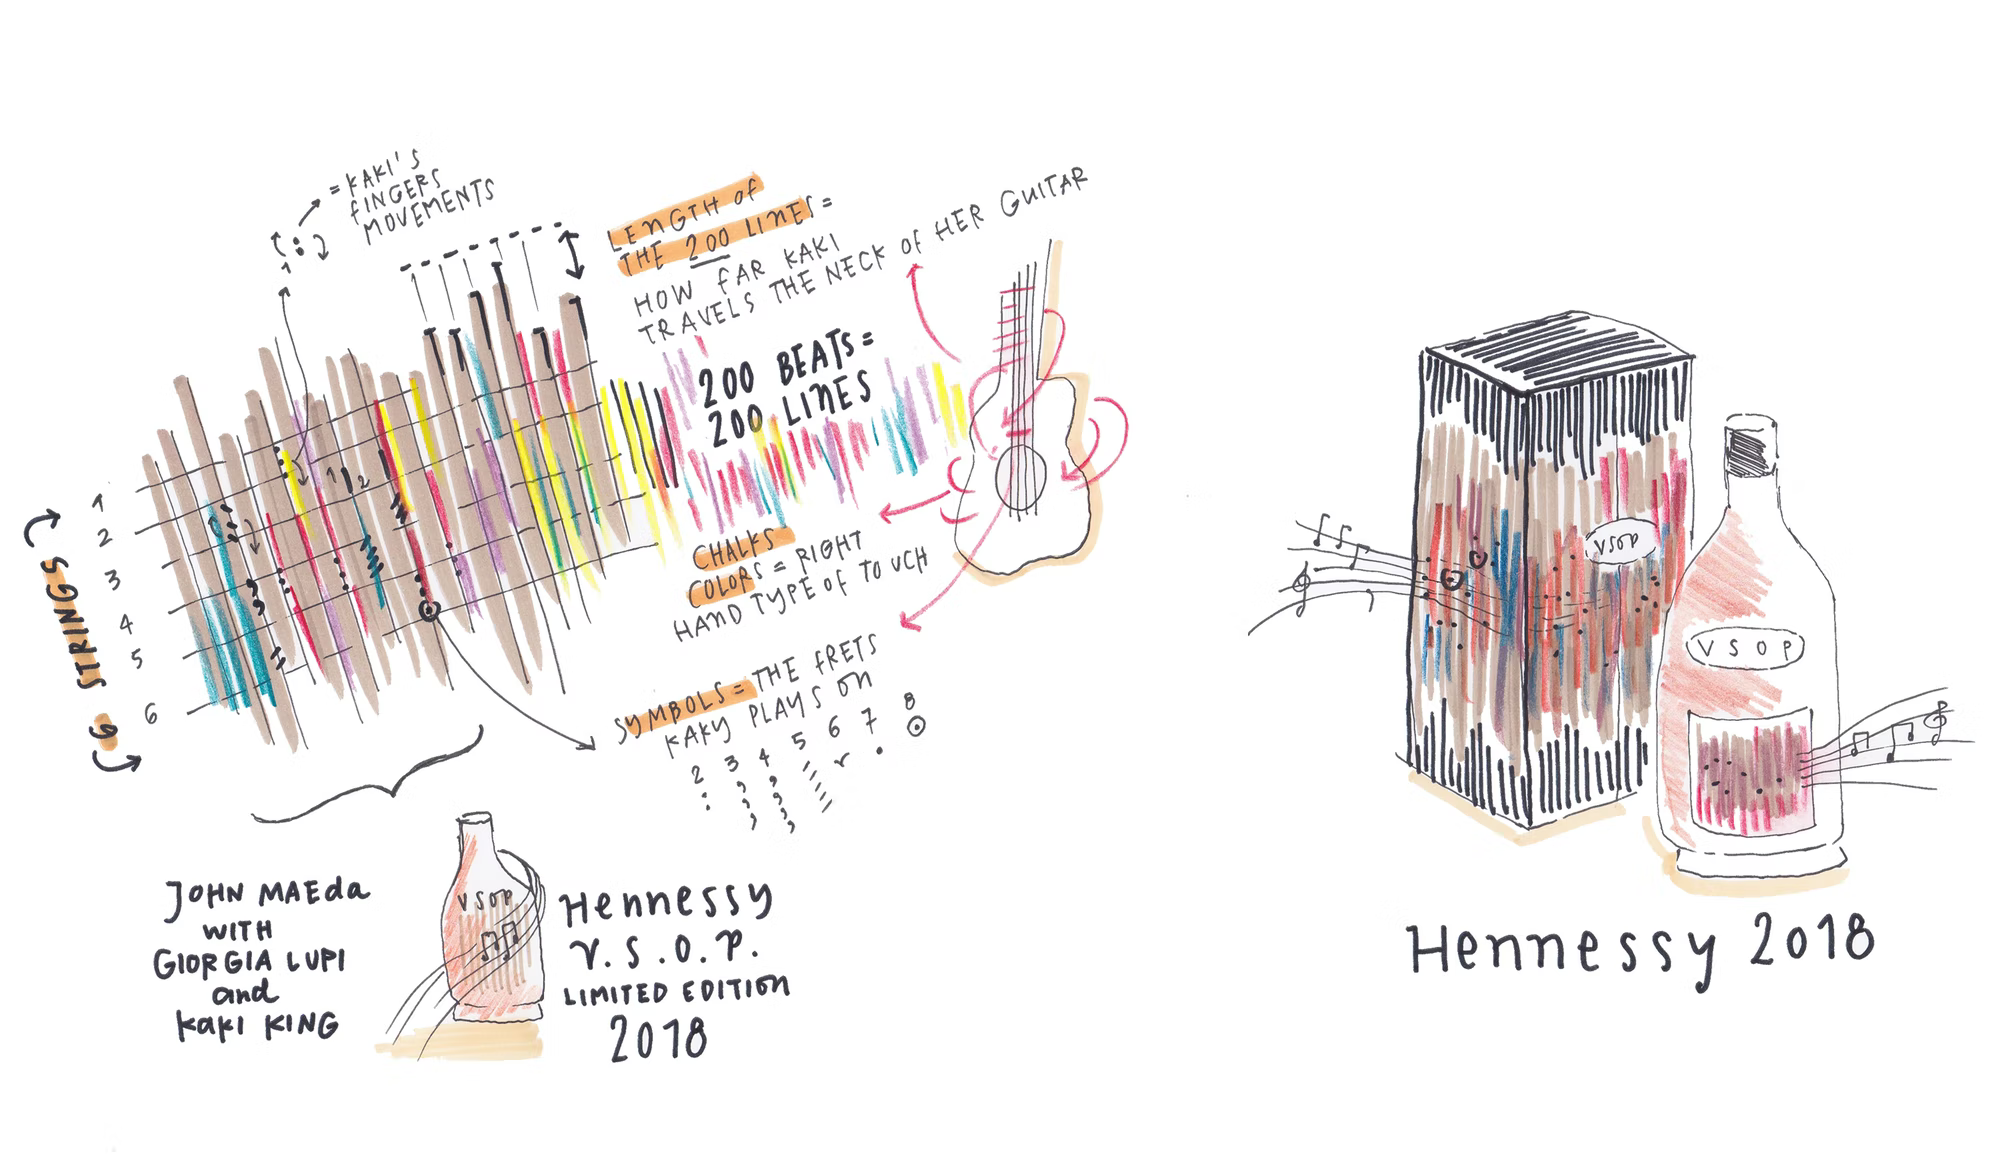 = KAKI'S
FINGERS
MOVEMENTS
LENGTH of
THE 200 LINES =
HOW FAR KAKI
TRAVELS THE NECK OF HER GUITAR
200 BEATS =
200 LINES
6 STRINGS
1
2
3
4
5
6
1 2
CHALKS
COLORS = RIGHT
HAND TYPE OF TOUCH
SYMBOLS = THE FRETS
KAKY PLAYS ON
2 3 4 5 6 7 8
JOHN MAEda
WITH
GIORGIA LUPI
and
KaKI KING
VSOP
Hennessy
V.S.O.P.
LIMITED EDITION
2018
VSOP
VSOP
Hennessy 2018